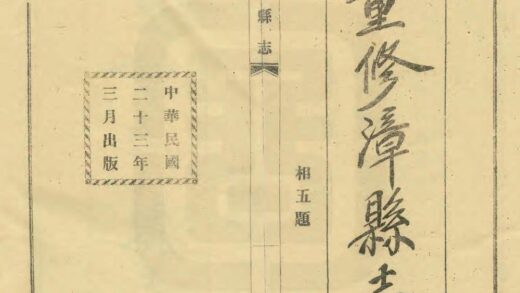 重修漳縣志
相五題
縣志
中華民國
二十三年
三月出版